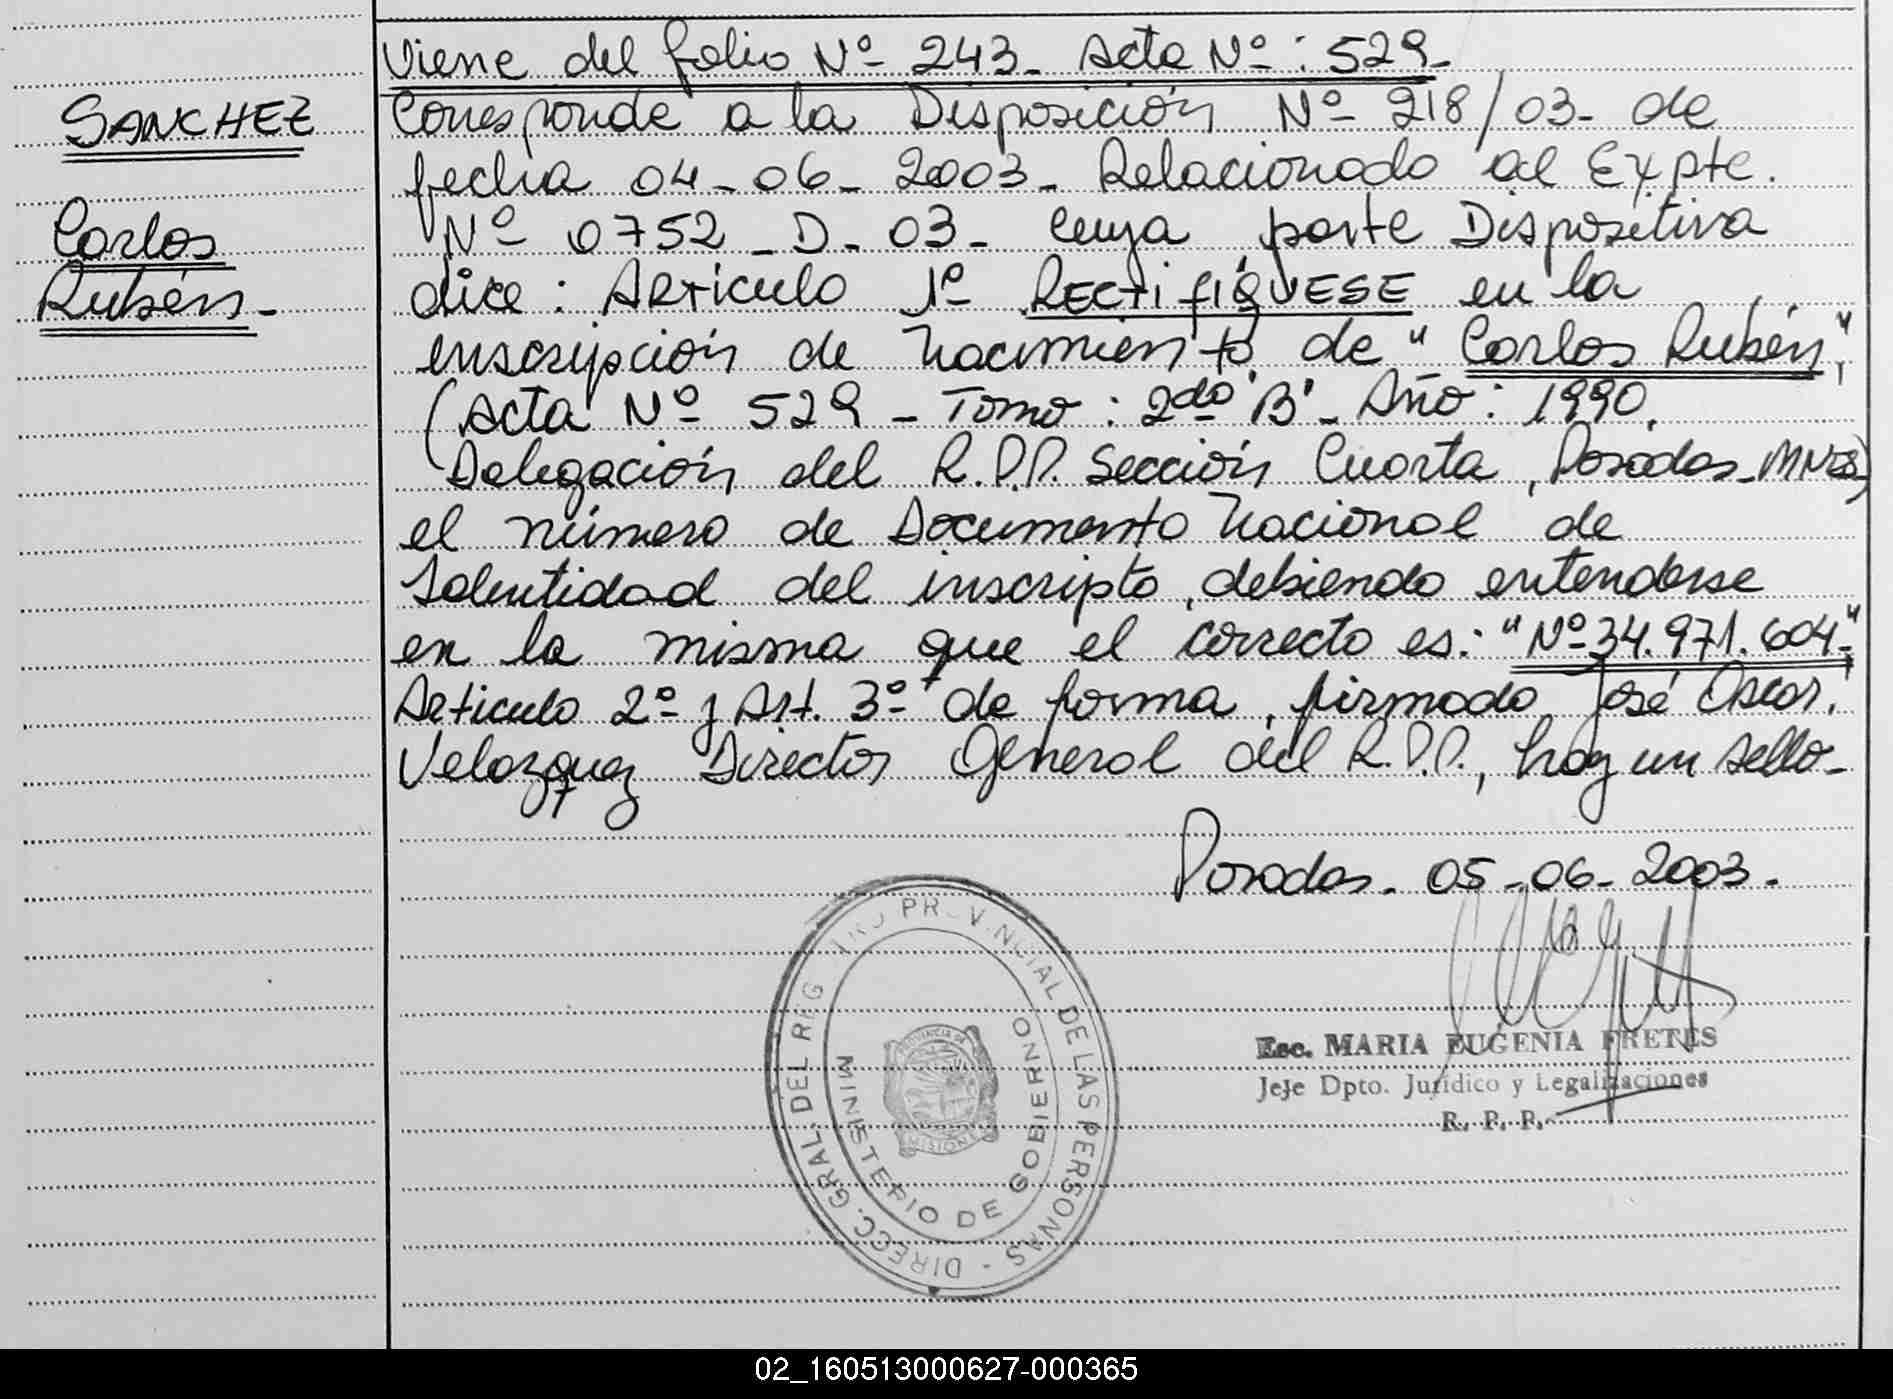 SANCHEZ
Carlos
Rubén.-
Viene del folio Nº 243- Acta Nº: 529-
Corresponde a la Disposición Nº 218/03- de
fecha 04-06-2003- Relacionado al Expte.
Nº 0752-D-03- cuya parte Dispositiva
dice: Artículo 1º RECTIFÍQUESE en la
inscripción de nacimiento de "Carlos Rubén",
(Acta Nº 529 - Tomo: 2do 'B'- Año: 1990.
Delegación del R.P.P. Sección Cuarta, Posadas-MNES)
el número de Documento Nacional de
Identidad del inscripto, debiendo entenderse
en la misma que el correcto es: "Nº 34.971.604-"
Artículo 2º y Art. 3º de forma, firmado José Oscar
Velazquez Director General del R.P.P., hay un sello-
Posadas. 05-06-2003-
DIRECC. GRAL. DEL REG TRO PROVINCIAL DE LAS PERSONAS -
MINISTERIO DE GOBIERNO
PROVINCIA DE
MISIONES
Esc. MARIA EUGENIA FRETES
Jefe Dpto. Jurídico y Legalizaciones
R. P. P.
02_160513000627-000365